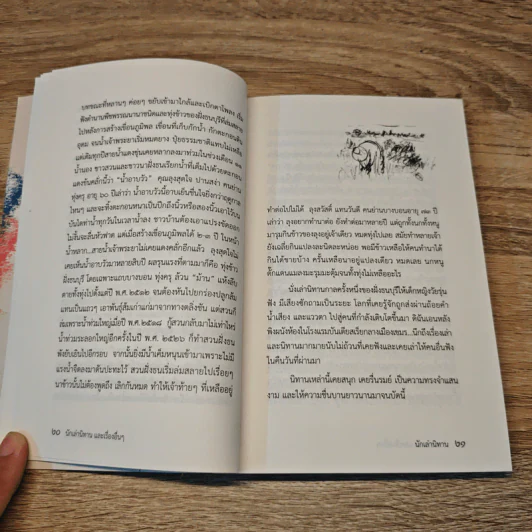 บทขณะที่หลานๆ ค่อยๆ ขยับเข้ามาใกล้และเบิกตาโพลง เมื่อ
ฟังตำนานพืชพรรณนานาชนิดและทุ่งข้าวของฝั่งธนบุรีที่ล่มสลาย
ไปหลังการสร้างเขื่อนภูมิพล เขื่อนที่เก็บกักน้ำ กักตะกอนดิน
อุดม จนน้ำเจ้าพระยาเริ่มหมดยาง ปุ๋ยธรรมชาติแทบไม่เหลือ
แต่เดิมทุกปีสายน้ำแดงขุ่นเคยหลากลงมาท่วมในช่วงเดือน
น้ำนอง ชาวสวนและชาวนาฝั่งธนเรียกน้ำที่เต็มไปด้วยตะกอน
แดงข้นคลั่กนี้ว่า “น้ำอาบวัว” คุณลุงสุดใจ ปานสง่า คนย่าน
ทุ่งครุ อายุ ๖๐ ปีเล่าว่า น้ำอาบวัวนี้อาบเย็นชื่นใจยิ่งกว่าฤดูกาล
ไหนๆ และจะทิ้งตะกอนหนาเป็นปึกถึงนิ้วหรือสองนิ้วเอาไว้บน
บันไดท่าน้ำทุกวันในเวลาน้ำลง ชาวบ้านต้องเอาแปรงขัดออก
ไม่งั้นจะลื่นหัวฟาด แต่เมื่อสร้างเขื่อนภูมิพลได้ ๒-๓ ปี ในหน้า
น้ำหลาก...สายน้ำเจ้าพระยาไม่เคยแดงคลั่กอีกแล้ว ลุงสุดใจไม่
เคยเห็นน้ำอาบวัวมาหลายสิบปี ผลรุนแรงที่ตามมาก็คือ ทุ่งข้าว
ฝั่งธนบุรี โดยเฉพาะแถบบางบอน ทุ่งครุ ล้วน “ม้าน” แห้งลีบ
ตายทั้งทุ่งไปตั้งแต่ปี พ.ศ. ๒๕๑๒ จนต้องหันไปยกร่องปลูกส้ม
แทนเป็นแถวๆ เอาพันธุ์ส้มเก่าแก่มาจากทางตลิ่งชัน แต่สวนก็
ล่มเพราะน้ำท่วมใหญ่เมื่อปี พ.ศ. ๒๕๑๘ กู้สวนกลับมาไม่เท่าไหร่
น้ำท่วมระลอกใหญ่อีกครั้งในปี พ.ศ. ๒๕๒๖ ก็ทำสวนฝั่งธน
พังยับเยินไปอีกรอบ จากนั้นยิ่งมีน้ำเค็มหนุนเข้ามาเพราะไม่มี
แรงน้ำจืดลงมาดันปะทะไว้ สวนฝั่งธนเริ่มล่มสลายไปเรื่อยๆ
นาข้าวนั้นไม่ต้องพูดถึง เลิกกันหมด ทำให้เจ้าท้ายๆ ที่เหลืออยู่
๒๐ นักเล่านิทาน และเรื่องอื่นๆ
ทำต่อไปไม่ได้ ลุงสวัสดิ์ แทนวันดี คนย่านบางบอนอายุ ๗๓ ปี
เล่าว่า ลุงอยากทำนาต่อ ยังทำต่อมาหลายปี แต่ถูกทั้งนกทั้งหนู
มารุมกินข้าวของลุงอยู่เจ้าเดียว หมดทุ่งไปเลย สมัยทำหลายเจ้า
ยังเฉลี่ยกันแปลงละนิดละหน่อย พอมีข้าวเหลือให้คนทำนาได้
กินได้ขายบ้าง ครั้นเหลือนาอยู่แปลงเดียว หมดเลย นกหนู
ตั๊กแตนแมลงมะรุมมะตุ้มจนทั้งทุ่งไม่เหลืออะไร
นั่งเล่านิทานกาลครั้งหนึ่งของฝั่งธนบุรีให้เด็กหญิงวัยรุ่น
ฟัง มีเสียงซักถามเป็นระยะ โลกที่เคยรู้จักถูกส่งผ่านถ้อยคำ
น้ำเสียง และแววตา ไปสู่คนที่กำลังเติบโตขึ้นมา ดิฉันเอนหลัง
ฟังผนังห้องในโรงแรมบันเตียสเรียกลางเมืองเสมร...นึกถึงเรื่องเล่า
และนิทานมากมายนับไม่ถ้วนที่เคยฟังและเคยเล่าให้คนอื่นฟัง
ในคืนวันที่ผ่านมา
นิทานเหล่านี้เคยสนุก เคยรื่นรมย์ เป็นความทรงจำแสน
งาม และให้ความชื่นบานยาวนานมาจนบัดนี้
นักเล่านิทาน ๒๑